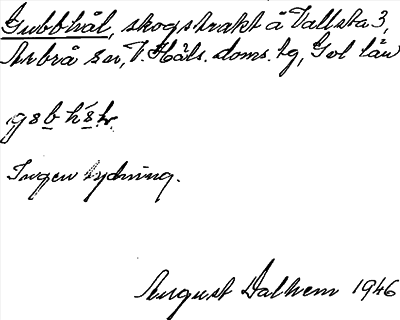 Gubbhål, skogstrakt å Vallsta 3,
Arbrå sn, V. Häls. doms. tg, Gvl län
Ingen tydning.
August Dalhem 1946